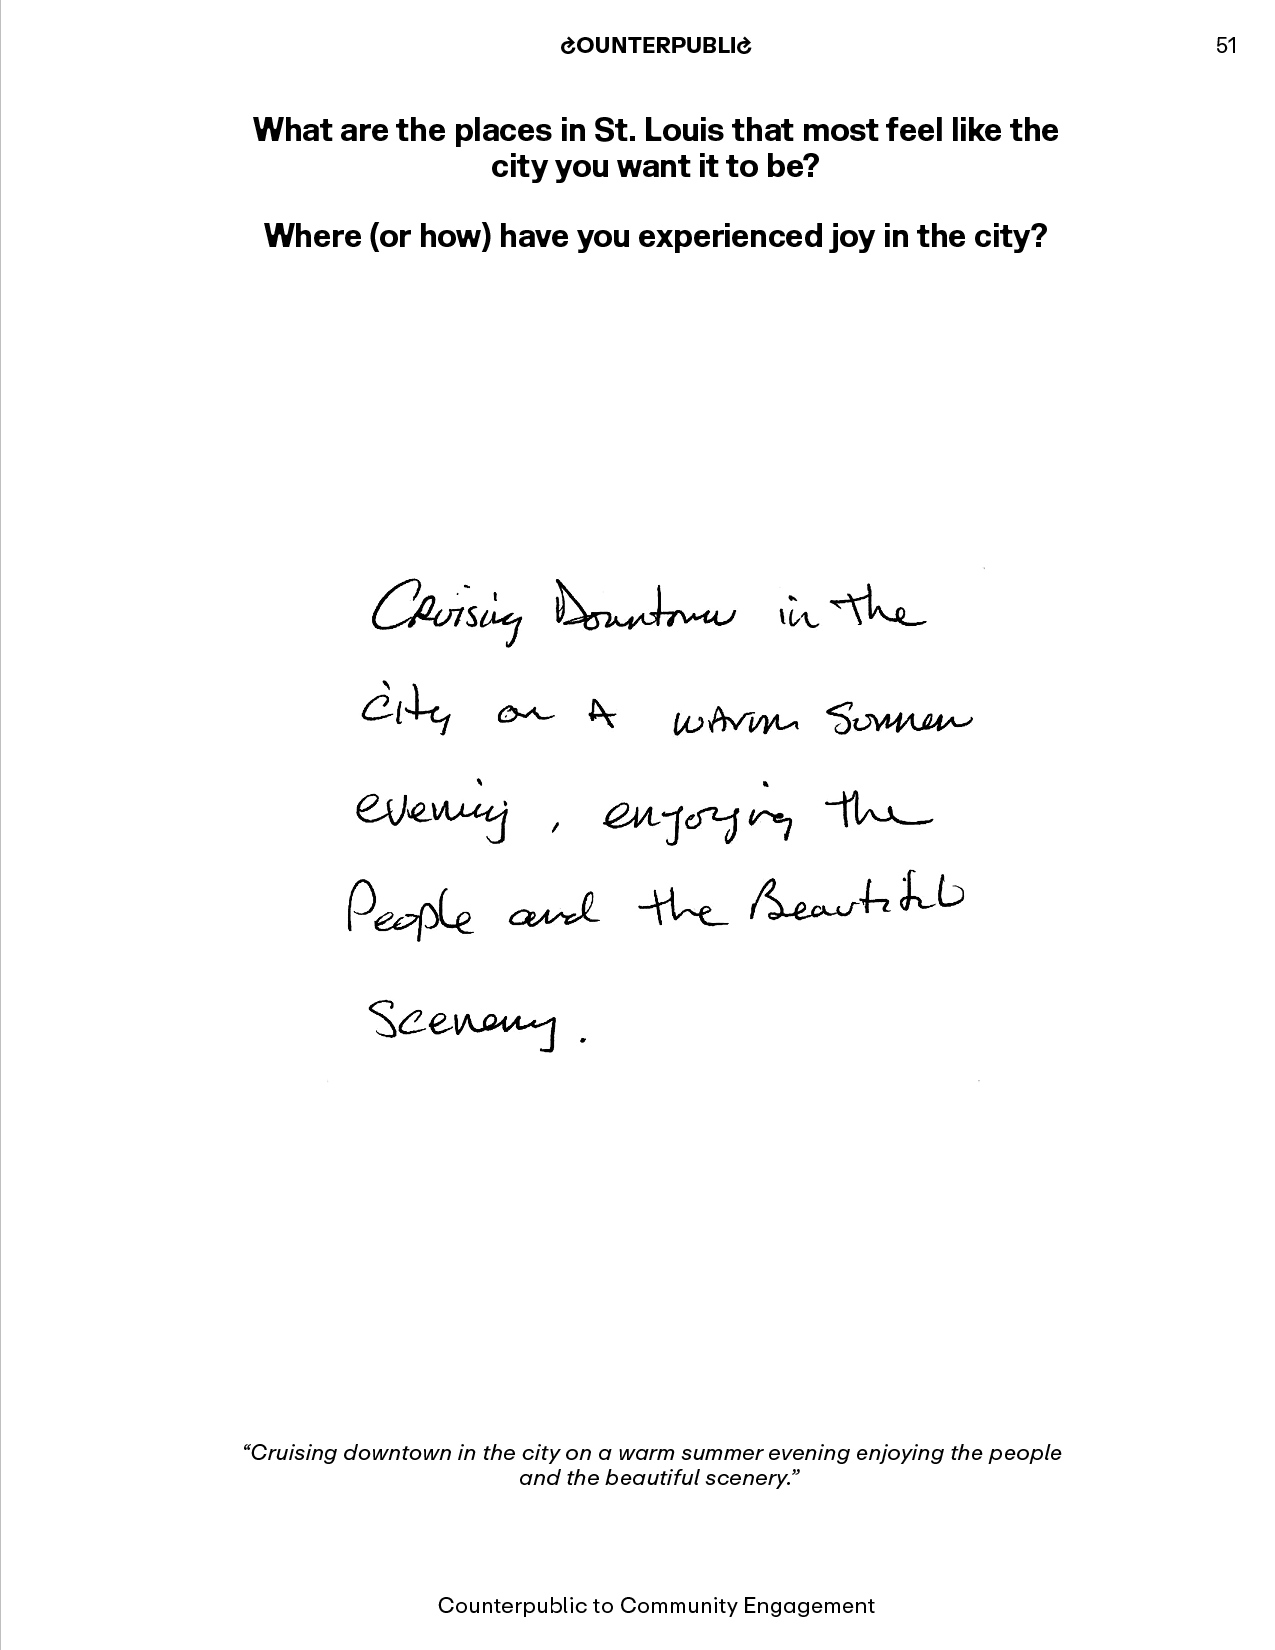 COUNTERPUBLIC
51
What are the places in St. Louis that most feel like the
city you want it to be?
Where (or how) have you experienced joy in the city?
Cruising Downtown in the
city on A warm Summer
evening, enjoying the
People and the Beautiful
Scenery.
“Cruising downtown in the city on a warm summer evening enjoying the people
and the beautiful scenery.”
Counterpublic to Community Engagement